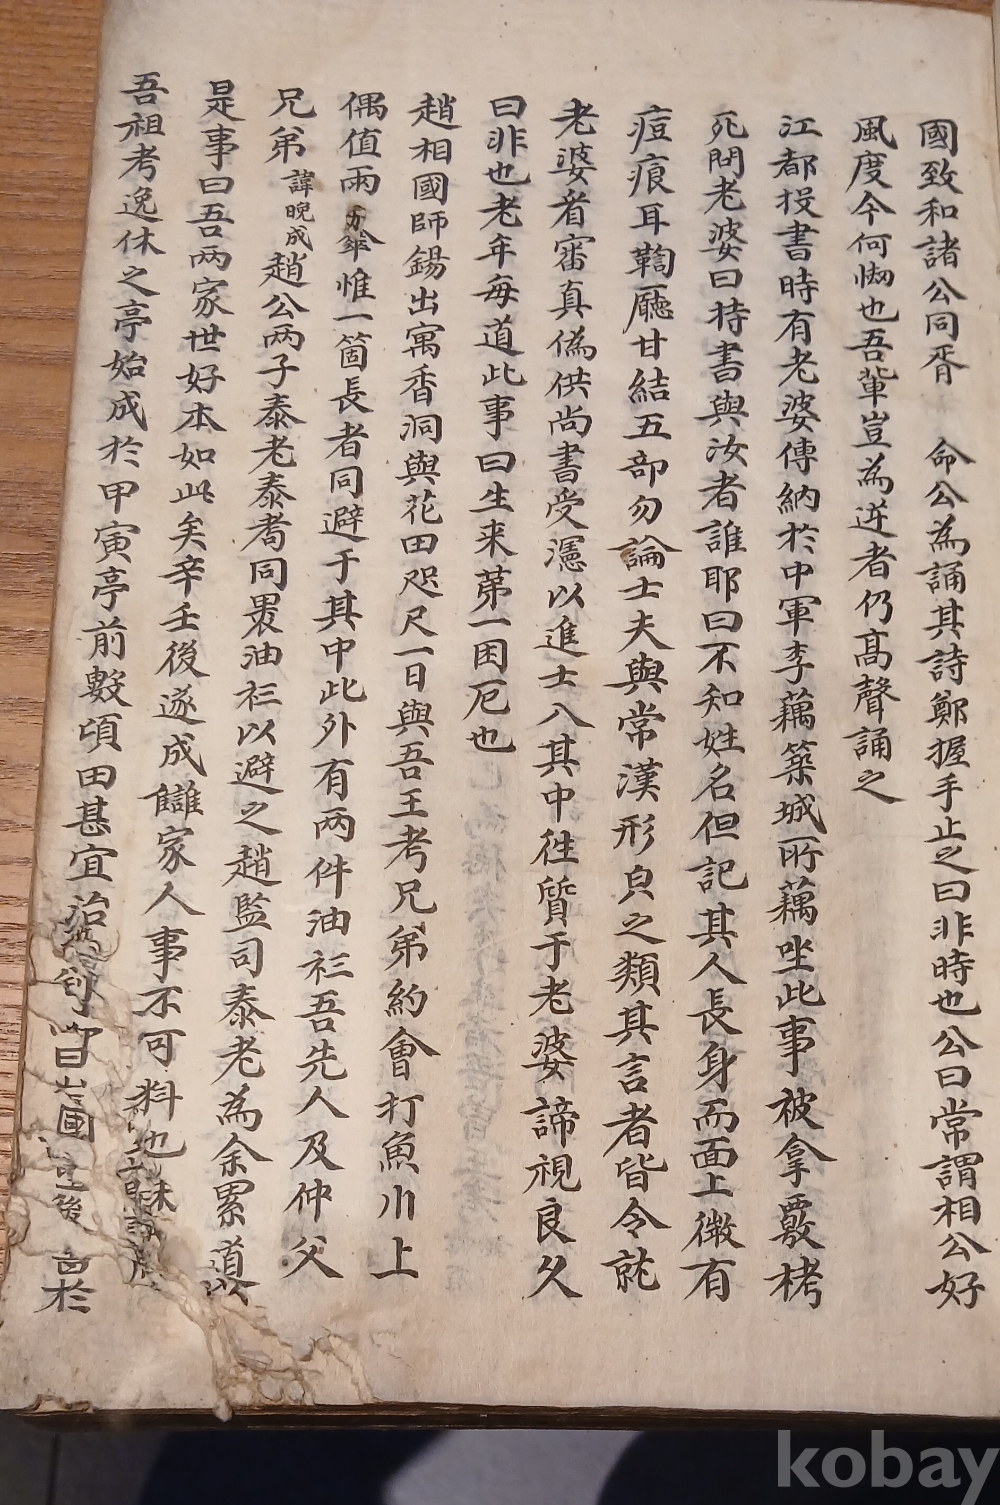 國致和諸公同胥 命公為誦其詩鄭握手止之曰非時也公曰常謂相公好
風度今何㤼也吾輩豈為逆者仍高聲誦之
江都投書時有老婆傳納於中軍李藕築城所藕坐此事被拿覈栲
死問老婆曰持書與汝者誰耶曰不知姓名但記其人長身而面上微有
痘痕耳鞫廳甘結五部勿論士夫與常漢形皃之類其言者皆令就
老婆者審真偽供尚書受㵎以進士入其中徃質于老婆諦視良久
曰非也老年每道此事曰生来苐一困厄也
趙相國師錫出寓香洞與花田咫尺一日與吾王考兄弟約會打魚川上
偶值雨 傘惟一箇長者同避于其中此外有两件油衫吾先人及仲父
兄弟諱晚成趙公两子泰老泰耉同褁油衫以避之趙監司泰老為余累道
是事曰吾两家世好本如此矣辛壬後遂成讎家人事不可料也
吾祖考逸休之亭始成於甲寅亭前數頃田甚宜治 曰 圖 後 於
kobay